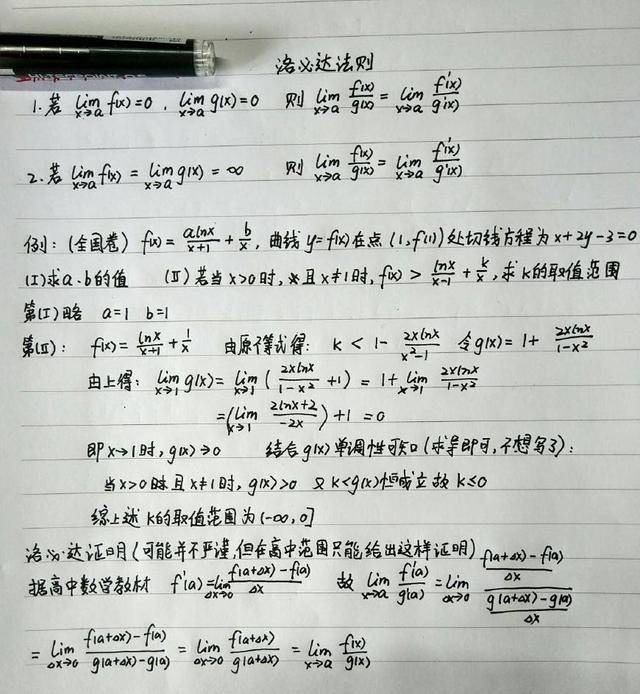 洛必达法则
1. 若 lim_{x→a} f(x)=0 , lim_{x→a} g(x)=0 则 lim_{x→a} f(x)/g(x) = lim_{x→a} f'(x)/g'(x)
2. 若 lim_{x→a} f(x) = lim_{x→a} g(x) = ∞ 则 lim_{x→a} f(x)/g(x) = lim_{x→a} f'(x)/g'(x)
例:(全国卷) f(x) = alnx/(x+1) + b/x, 曲线 y=f(x) 在点 (1,f(1)) 处切线方程为 x+2y-3=0
(I)求 a、b 的值 (II) 若当 x>0 时, 且 x≠1 时, f(x) > lnx/(x-1) + k/x, 求 k 的取值范围
第(I)略 a=1 b=1
第(II): f(x) = lnx/(x+1) + 1/x 由原不等式得: k < 1 - 2xlnx/(x²-1) 令 g(x) = 1 + 2xlnx/(1-x²)
由上得: lim_{x→1} g(x) = lim_{x→1} ( 2xlnx/(1-x²) +1 ) = 1 + lim_{x→1} 2xlnx/(1-x²)
= (lim_{x→1} (2lnx+2)/(-2x)) +1 = 0
即 x→1 时, g(x)→0 结合 g(x) 单调性可知 (求导即可, 不想写了):
当 x>0 时且 x≠1 时, g(x)>0 又 k<g(x) 恒成立故 k≤0
综上述 k 的取值范围为 (-∞,0]
洛必达证明(可能并不严谨,但在高中范围只能给出这样证明)
据高中数学教材 f'(a) = lim_{Δx→0} (f(a+Δx)-f(a))/Δx 故 lim_{x→a} f'(a)/g'(a) = lim_{Δx→0} ((f(a+Δx)-f(a))/Δx)/((g(a+Δx)-g(a))/Δx)
= lim_{Δx→0} (f(a+Δx)-f(a))/(g(a+Δx)-g(a)) = lim_{Δx→0} f(a+Δx)/g(a+Δx) = lim_{x→a} f(x)/g(x)